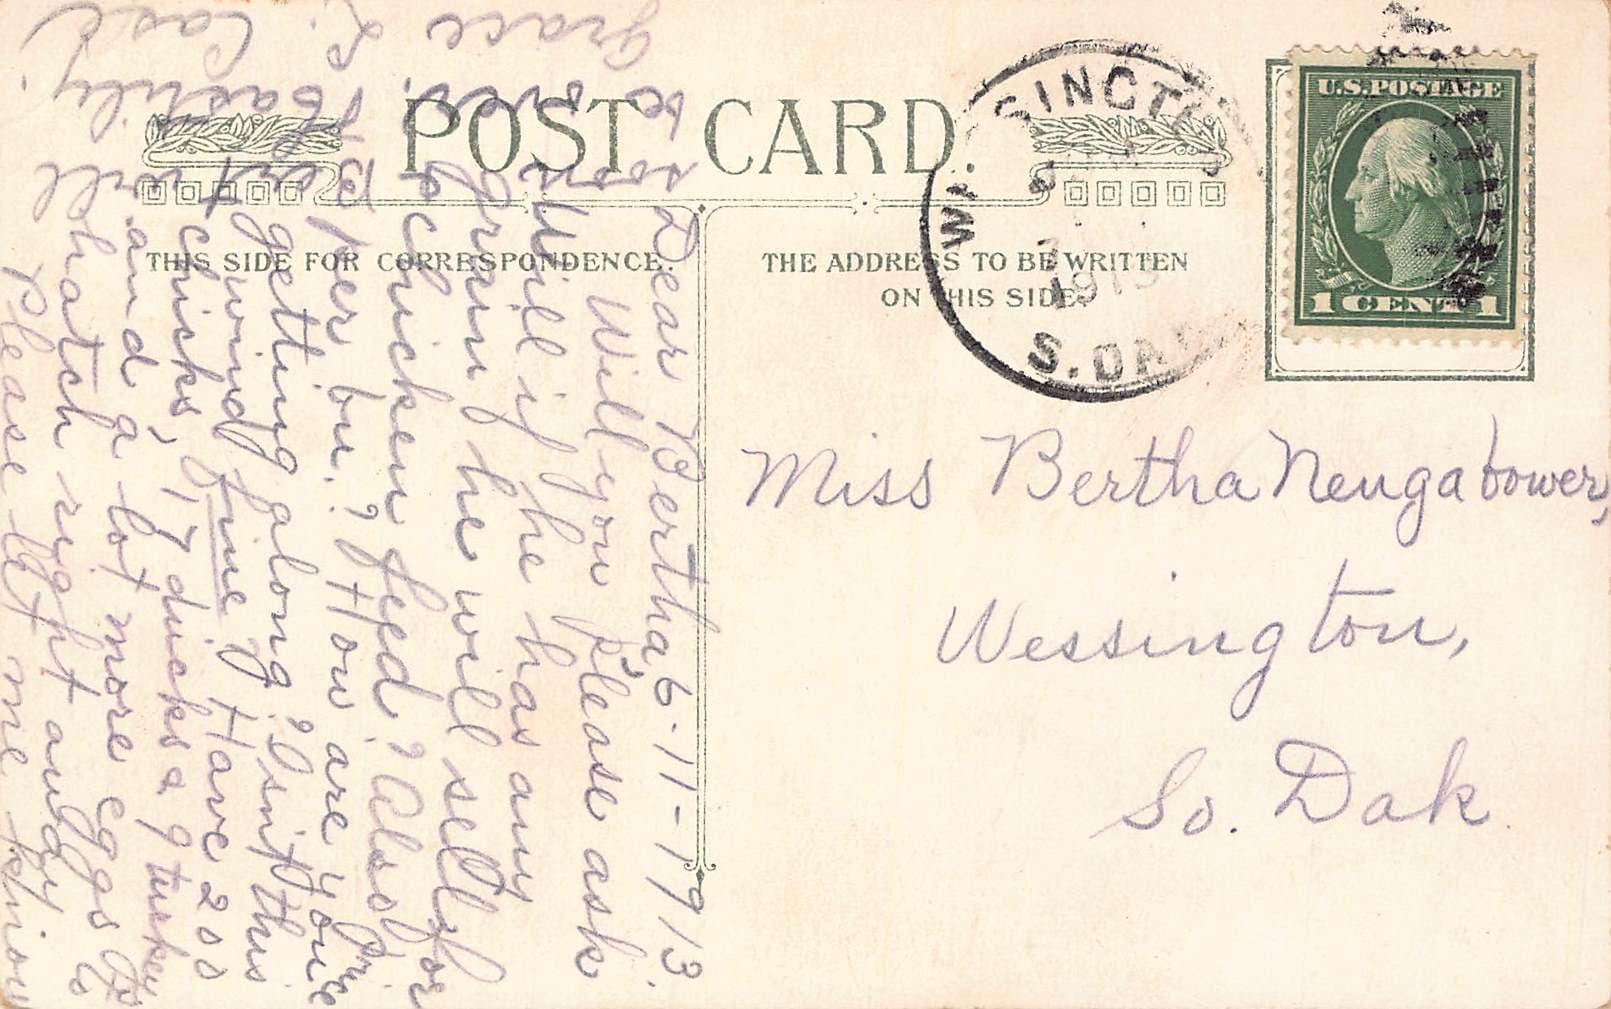 POST CARD
THIS SIDE FOR CORRESPONDENCE.
THE ADDRESS TO BE WRITTEN
ON THIS SIDE.
U.S. POSTAGE
1 CENT 1
S. DAK
1913
Dear Bertha 6-11-1913.
Will you please ask
Will if he has any
grain he will sell for
chicken feed? Also price
per bu.? How are you
getting along? Isn't this
wind fine? Have 200
chicks, 17 ducks & 9 turkey
and a lot more eggs to
hatch right away
Please let me know
soon
Grace L. Case
Miss Bertha Neugabower,
Wessington,
So. Dak.